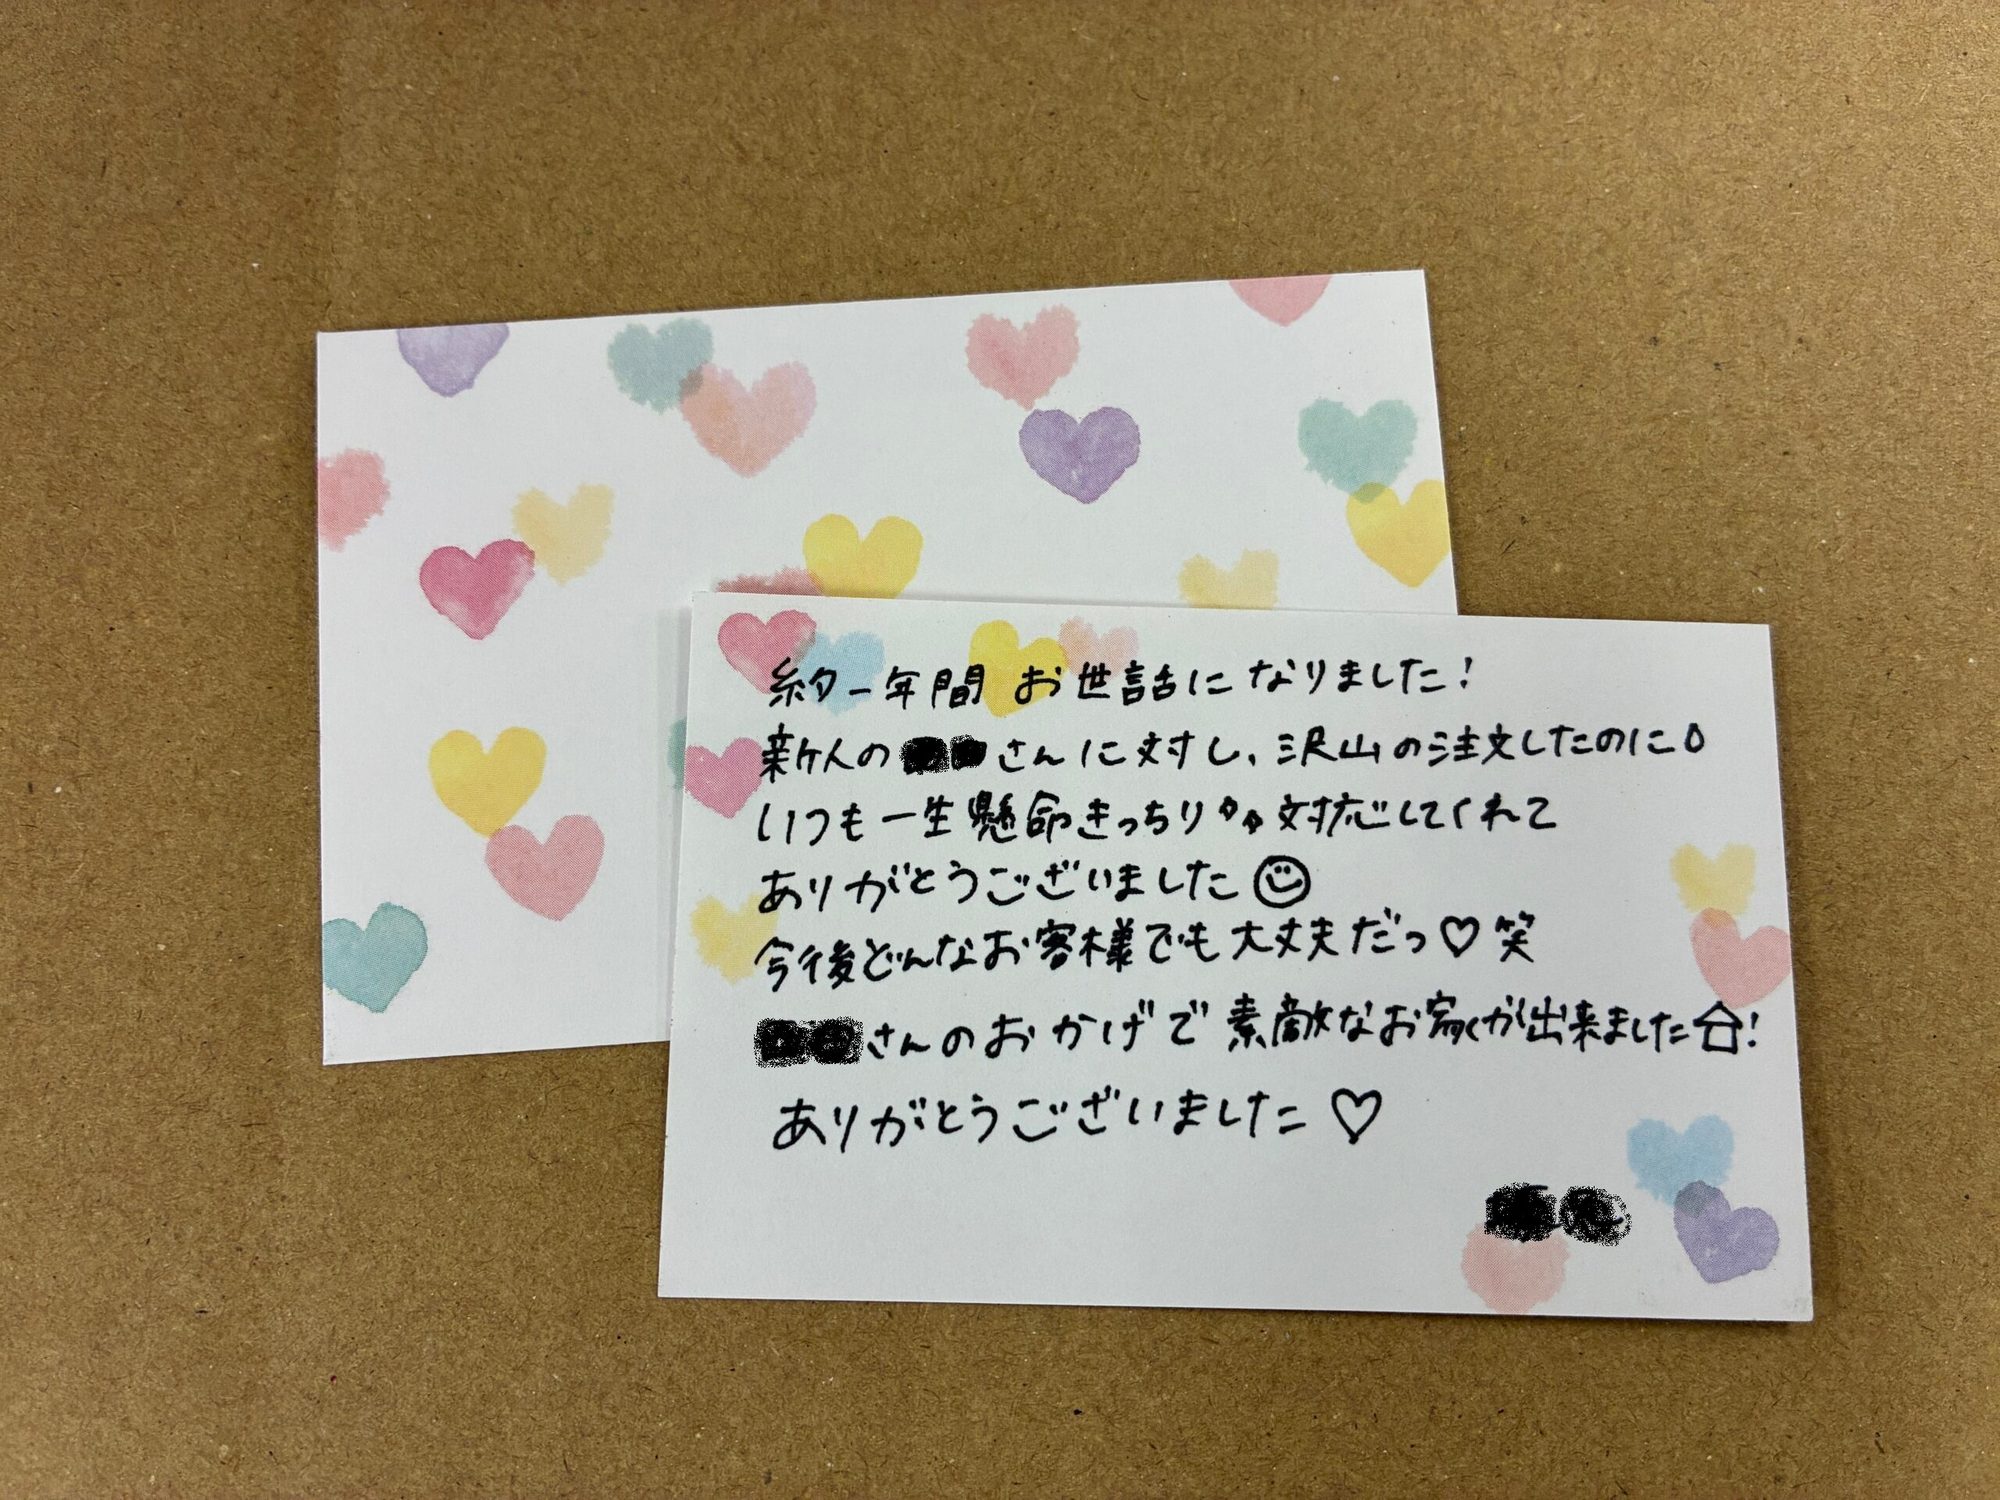 約一年間 お世話になりました!
新人の さんに対し、沢山の注文したのに
いつも一生懸命きっちり 対応してくれて
ありがとうございました
今後どんなお客様でも大丈夫だっ♡笑
さんのおかげで素敵なお家が出来ました!
ありがとうございました♡